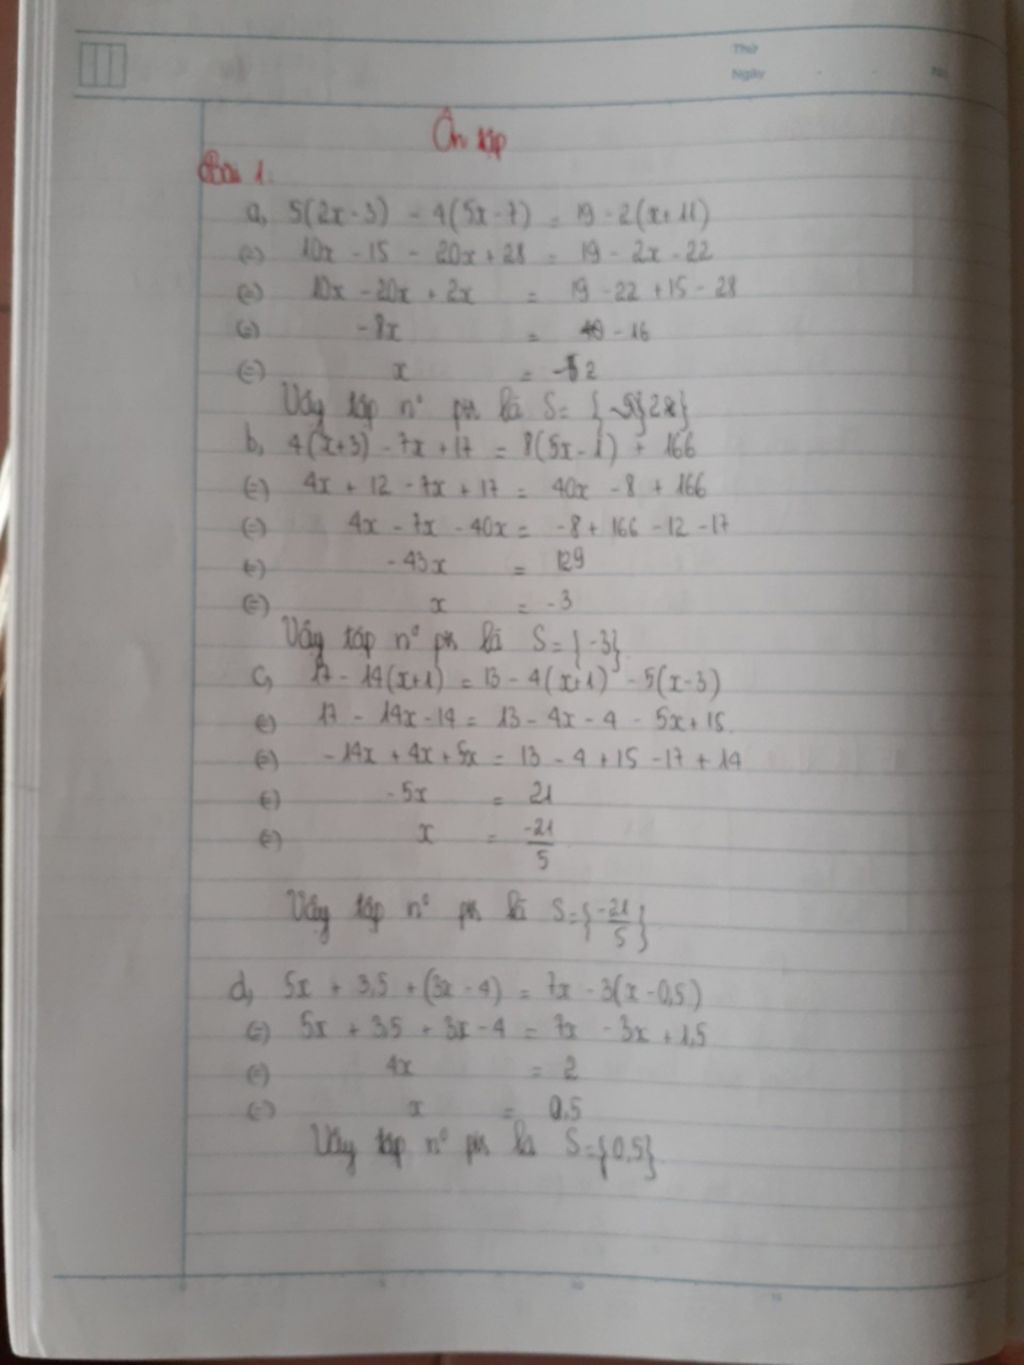 Thứ
Ngày
Ôn tập
Bài 1:
a, 5(2x - 3) - 4(5x - 7) = 19 - 2(x + 11)
(=) 10x - 15 - 20x + 28 = 19 - 2x - 22
(=) 10x - 20x + 2x = 19 - 22 + 15 - 28
(=) -8x = - 16
(=) x = 2
Vậy tập n° pt là S = { 2 }
b, 4(x+3) - 7x + 17 = 8(5x - 1) + 166
(=) 4x + 12 - 7x + 17 = 40x - 8 + 166
(=) 4x - 7x - 40x = -8 + 166 - 12 - 17
(=) -43x = 129
(=) x = -3
Vậy tập n° pt là S = {-3}
c, 17 - 14(x+1) = 13 - 4(x+1) - 5(x-3)
(=) 17 - 14x - 14 = 13 - 4x - 4 - 5x + 15.
(=) -14x + 4x + 5x = 13 - 4 + 15 - 17 + 14
(=) -5x = 21
(=) x = -21/5
Vậy tập n° pt là S = {-21/5}
d, 5x + 3,5 + (3x - 4) = 7x - 3(x - 0,5)
(=) 5x + 3,5 + 3x - 4 = 7x - 3x + 1,5
(=) 4x = 2
(=) x = 0,5
Vậy tập n° pt là S = {0,5}